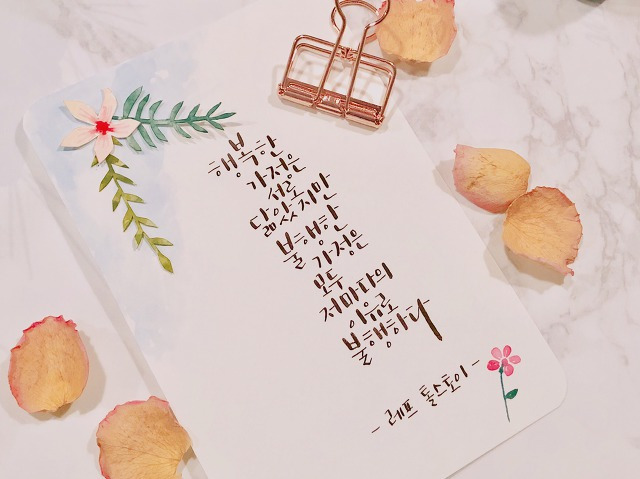 행복한
가정은
서로
닮았지만
불행한
가정은
모두
저마다의
이유로
불행하다
- 레프 톨스토이 -